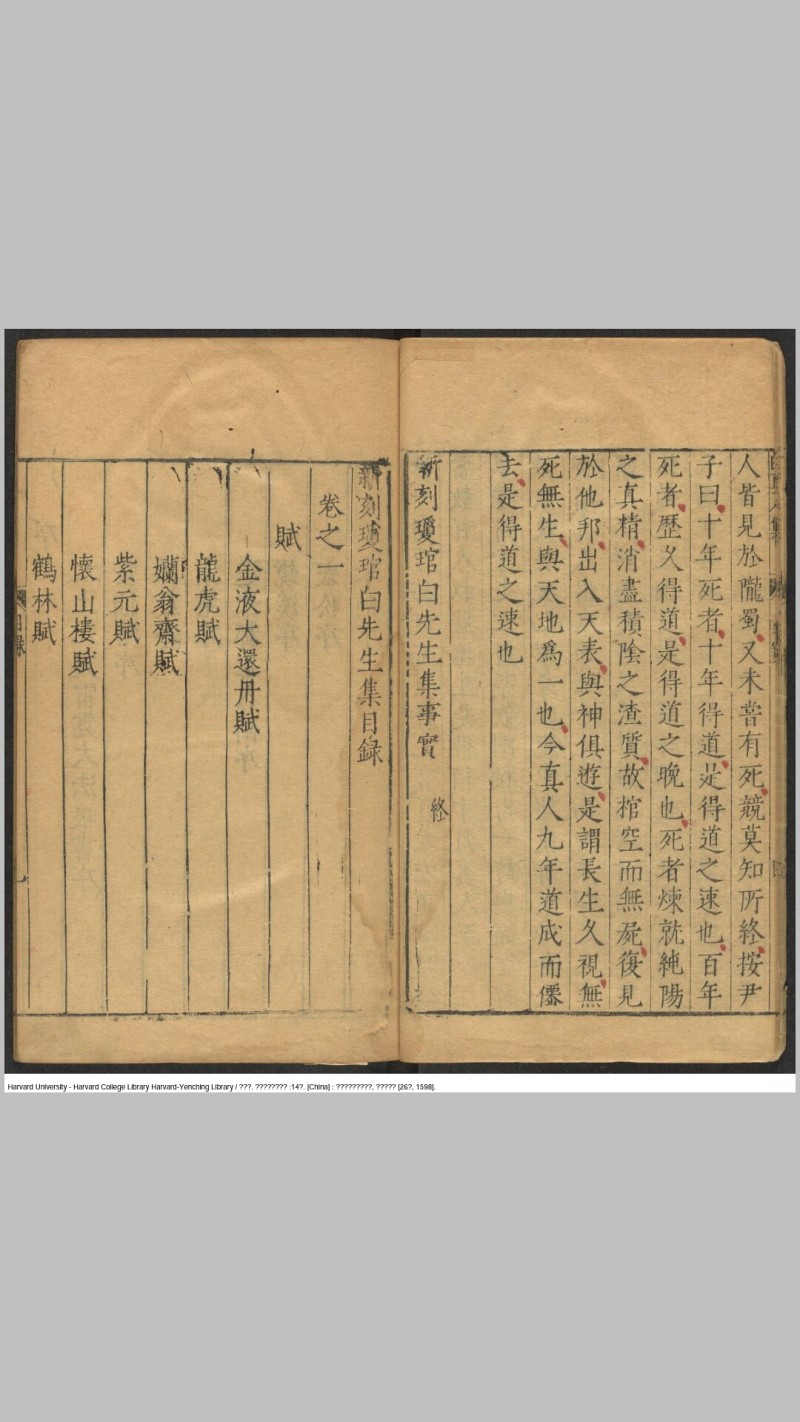 人皆見於隴蜀又未甞有死競莫知所終按尹
子曰十年死者十年得道是得道之速也百年
死者歷久得道是得道之晚也死者煉就純陽
之真精消盡積陰之渣質故棺空而無屍復見
於他邦出入天表與神俱遊是謂長生久視無
死無生與天地爲一也今真人九年道成而僊
去是得道之速也
新刻瓊琯白先生集事實 終
新刻瓊琯白先生集目録
卷之一
賦
金液大還丹賦
龍虎賦
嬾翁齋賦
紫元賦
懷山樓賦
鶴林賦
Harvard University - Harvard College Library Harvard-Yenching Library / ???. ???????? :14?. [China] : ?????????, ????? [26?, 1598].